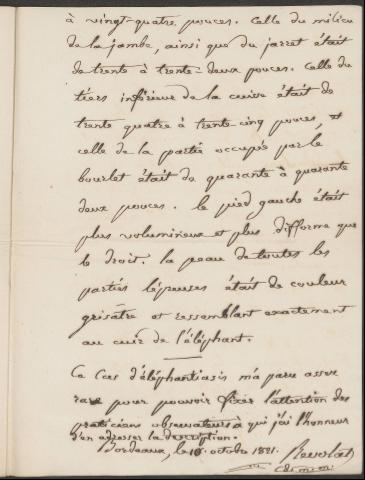 à vingt-quatre pouces. Celle du milieu
de la jambe, ainsi que du jarret était
de trente à trente-deux pouces. Celle du
tiers inférieur de la cuisse était de
trente quatre à trente-cinq pouces, et
celle de la partie occupée par le
bourlet était de quarante à quarante
deux pouces. le pied gauche était
plus volumineux et plus difforme que
le droit. la peau de toutes les
parties lépreuses était de couleur
grisâtre et ressemblant exactement
au cuir de l'éléphant.
Ce Cas d'éléphantiasis m'a paru assez
rare pour pouvoir fixer l'attention des
praticiens observateurs à qui j'ai l'honneur
d'en adresser la description.
Bordeaux, le 10 octobre 1821.